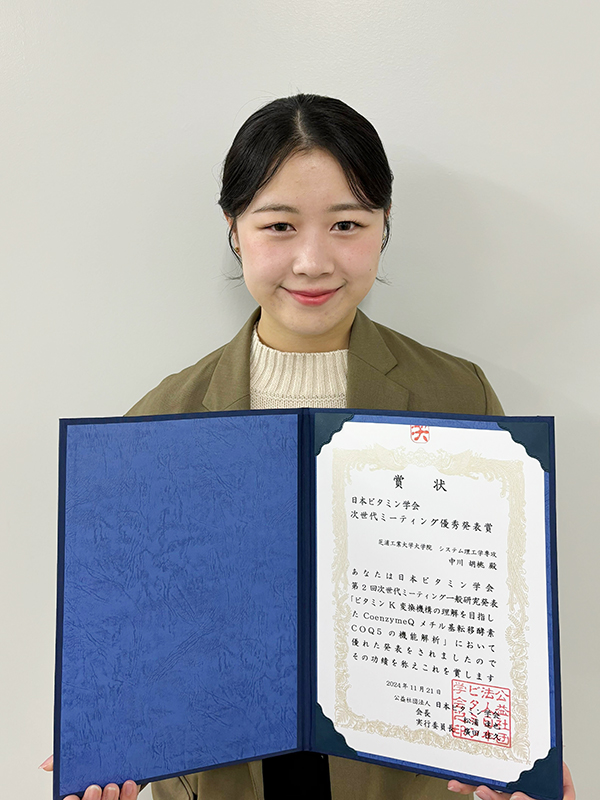 賞状
日本ビタミン学会
次世代ミーティング優秀発表賞
芝浦工業大学大学院 システム理工学専攻
中川 胡桃 殿
あなたは日本ビタミン学会
第2回次世代ミーティング一般研究発表
「ビタミンK変換機構の理解を目指し
たCoenzymeQメチル基転移酵素
COQ5の機能解析」において
優れた発表をされましたので
その功績を称えこれを賞します
2024年11月21日
公益社団法人 日本ビタミン学会
会長 松浦 達也
実行委員長